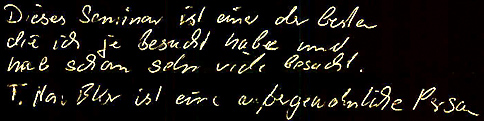 Dieses Seminar ist einer der besten
die ich je besucht habe und
hab schon sehr viele besucht.
ist eine außergewöhnliche Person